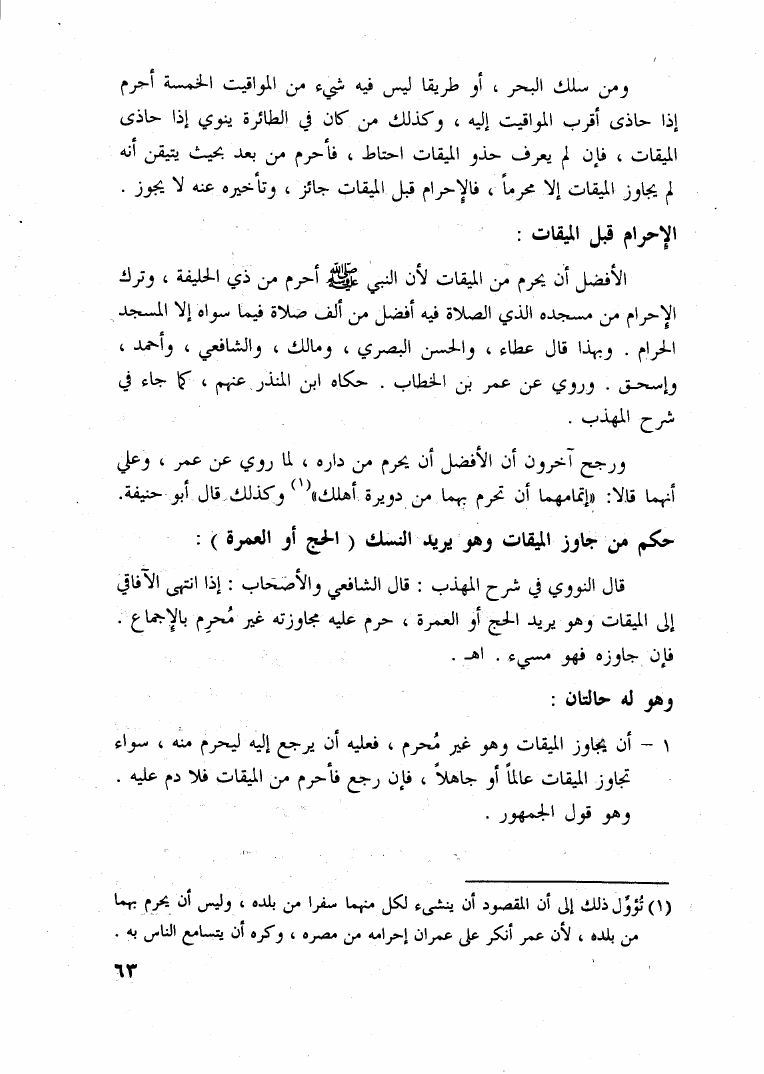 ومن سلك البحر ، أو طريقا ليس فيه شيء من المواقيت الخمسة أحرم
إذا حاذى أقرب المواقيت إليه ، وكذلك من كان في الطائرة ينوي إذا حاذى
الميقات ، فإن لم يعرف حذو الميقات احتاط ، فأحرم من بعد بحيث يتيقن أنه
لم يجاوز الميقات إلا محرماً ، فالإحرام قبل الميقات جائز ، وتأخيره عنه لا يجوز .
الإحرام قبل الميقات :
الأفضل أن يحرم من الميقات لأن النبي ﷺ أحرم من ذي الحليفة ، وترك
الإحرام من مسجده الذي الصلاة فيه أفضل من ألف صلاة فيما سواه إلا المسجد
الحرام . وبهذا قال عطاء ، والحسن البصري ، ومالك ، والشافعي ، وأحمد ،
وإسحق . وروي عن عمر بن الخطاب . حكاه ابن المنذر عنهم ، كما جاء في
شرح المهذب .
ورجح آخرون أن الأفضل أن يحرم من داره ، لما روي عن عمر ، وعلي
أنهما قالا: «إتمامهما أن تحرم بهما من دويرة أهلك»(١) وكذلك قال أبو حنيفة.
حكم من جاوز الميقات وهو يريد النسك ( الحج أو العمرة ) :
قال النووي في شرح المهذب : قال الشافعي والأصحاب : إذا انتهى الآفاقي
إلى الميقات وهو يريد الحج أو العمرة ، حرم عليه مجاوزته غير مُحرِم بالإجماع .
فإن جاوزه فهو مسيء . اهـ .
وهو له حالتان :
١ – أن يجاوز الميقات وهو غير مُحرم ، فعليه أن يرجع إليه ليحرم منه ، سواء
تجاوز الميقات عالماً أو جاهلاً ، فإن رجع فأحرم من الميقات فلا دم عليه .
وهو قول الجمهور .
(١) تُؤوِّل ذلك إلى أن المقصود أن ينشىء لكل منهما سفرا من بلده ، وليس أن يحرم بهما
من بلده ، لأن عمر أنكر على عمران إحرامه من مصره ، وكره أن يتسامع الناس به .
٦٣